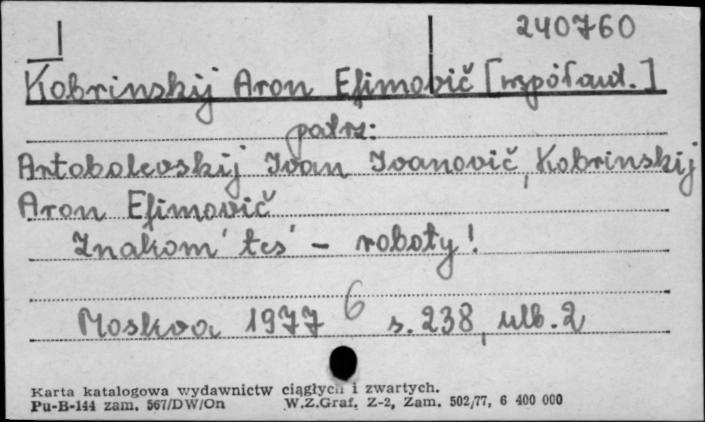 240760
Kobrinskij Aron Efimovič [współaut.]
patrz:
Artobolevskij Ivan Ivanovič, Kobrinskij
Aron Efimovič
Znakom'tes' - roboty!
6
Moskva 1977 s. 238, ulb. 2
Karta katalogowa wydawnictw ciągłych i zwartych.
Pu-B-144 zam. 567/DW/On W.Z.Graf. Z-2, Zam. 502/77, 6 400 000